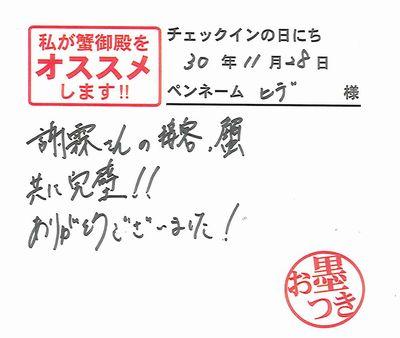 私が蟹御殿を
オススメ
します!!
チェックインの日にち
30年11月28日
ペンネーム ヒデ 様
謝霖さんの接客、顔
共に完璧!!
ありがとうございました!
お墨つき